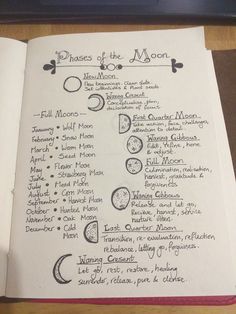 Phases of the Moon
New Moon
New beginnings. Clean slate.
Set intentions & Plant seeds
Waxing Cresent
Conceptualise, plan,
declaration of focus.
First Quarter Moon
Take action, face challenges,
attention to detail.
Waxing Gibbous
Edit, refine, hone
& adjust.
Full Moon
Culmination, realisation,
harvest, gratitude &
forgiveness.
Waning Gibbous
Release and let go,
Receive harvest, service
nature lites.
Last Quarter Moon
Transition, re-evaluation, reflection
rebalance, letting go, forgiveness.
Waning Cresent
Let go, rest, restore, healing
surrender, release, pure & cleanse.
~Full Moons~
January • Wolf Moon
February • Snow Moon
March • Worm Moon
April • Seed Moon
May • Flower Moon
June • Strawberry Moon
July • Mead Moon
August • Corn Moon
September • Harvest Moon
October • Hunters Moon
November • Oak Moon
December • Cold
Moon